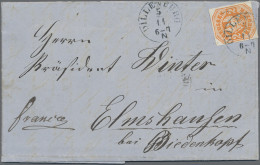 DILLENBURG
5
11
6-7 N
Herrn
Präsident Winter
Franco
Elmshausen
bei Biedenkopf